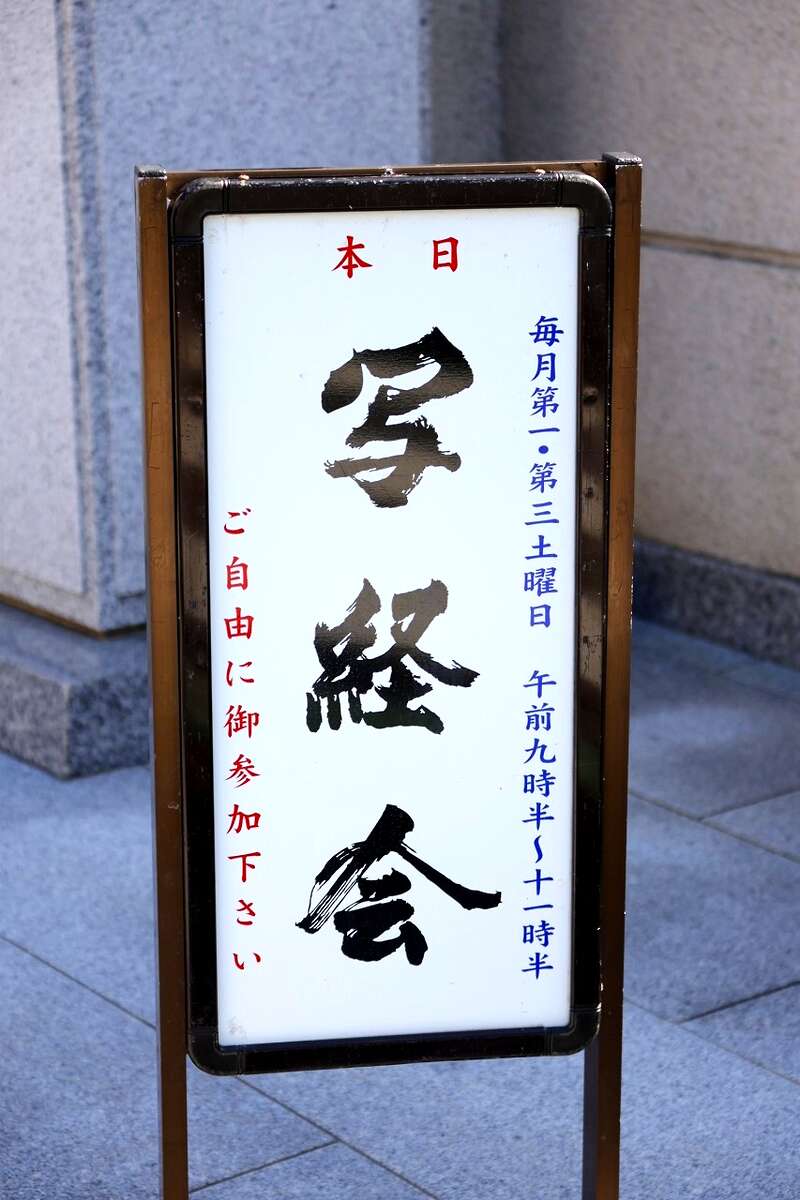 本日
毎月第一・第三土曜日　午前九時半～十一時半
写経会
ご自由に御参加下さい